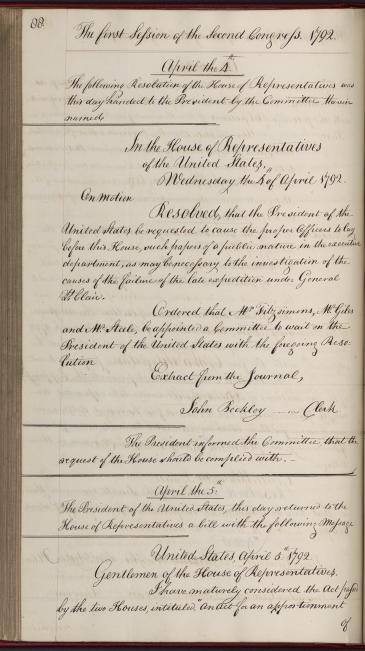 88.
The first Session of the Second Congress. 1792.
April the 4th.
The following Resolution of the House of Representatives was
this day handed to the President by the Committee therein
named.
In the House of Representatives
of the United States,
Wednesday the 4th of April 1792.
On Motion
Resolved, that the President of the
United States be requested to cause the proper Officers to lay
before this House, such papers of a public nature in the executive
department, as may be necessary to the investigation of the
causes of the failure of the late expedition under General
St Clair.
Ordered that Mr Fitzsimons, Mr Giles
and Mr Steele, be appointed a Committee to wait on the
President of the United States with the foregoing Reso-
lution
Extract from the Journal,
John Beckley — Clerk
The President informed the Committee that the
request of the House should be complied with. —
April the 5th
The President of the United States, this day returned to the
House of Representatives a bill with the following Message
United States, April 5th 1792.
Gentlemen of the House of Representatives.
I have maturely considered the Act passed
by the two Houses, intituled "An Act for an apportionment
of